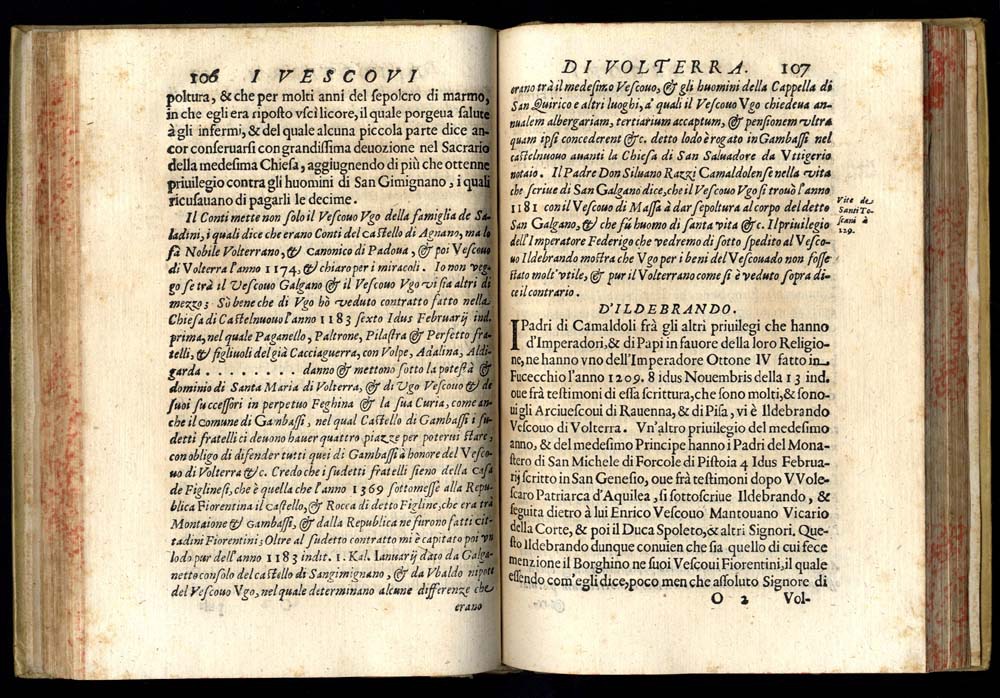 106 I VESCOVI
poltura, & che per molti anni del sepolcro di marmo,
in che egli era riposto vscì licore, il quale porgeua salute
à gli infermi, & del quale alcuna piccola parte dice an-
cor conseruarsi con grandissima deuozione nel Sacrario
della medesima Chiesa, aggiugnendo di più che ottenne
priuilegio contra gli huomini di San Gimignano, i quali
ricusauano di pagarli le decime.
Il Conti mette non solo il Vescouo Vgo della famiglia de Sa-
ladini, i quali dice che erano Conti del castello di Agnano, ma lo
fà Nobile Volterrano, & canonico di Padoua, & poi Vescouo
di Volterra l'anno 1174, & chiaro per i miracoli. Io non veg-
go se trà il Vescouo Galgano & il Vescouo Vgo vi sia altri di
mezzo; Sò bene che di Vgo hò veduto contratto fatto nella
Chiesa di Castelnuouo l'anno 1183 sexto Idus Februarij ind.
prima, nel quale Paganello, Paltrone, Pilastra & Perfetto fra-
telli, & figliuoli del già Cacciaguerra, con Volpe, Adalina, Aldi-
garda . . . . . . . . danno & mettono sotto la potestà &
dominio di Santa Maria di Volterra, & di Vgo Vescouo & de
suoi successori in perpetuo Feghina & la sua Curia, come an-
che il comune di Gambassi, nel qual Castello di Gambassi i su-
detti fratelli ci deuono hauer quattro piazze per poterui stare,
con obligo di difender tutti quei di Gambassi à honore del Vesco-
uo di Volterra &c. Credo che i sudetti fratelli sieno della casa
de Figlinesi, che è quella che l'anno 1369 sottomesse alla Repu-
blica Fiorentina il castello, & Rocca di detto Figline, che era trà
Montaione & Gambassi, & dalla Republica ne furono fatti cit-
tadini Fiorentini; Oltre al sudetto contratto mi è capitato poi vn
lodo pur dell'anno 1183 indit. 1. Kal. Ianuarij dato da Galga-
netto consolo del castello di Sangimignano, & da Vbaldo nipote
del Vescouo Vgo, nel quale determinano alcune differenze che
erano
DI VOLTERRA. 107
erano trà il medesimo Vescouo, & gli huomini della Cappella di
San Quirico e altri luoghi, a' quali il Vescouo Vgo chiedeua an-
nualem albergariam, tertiarium accaptum, & pensionem vltra
quam ipsi concederent &c. detto lodo è rogato in Gambassi nel
castelnuouo auanti la Chiesa di San Saluadore da Vttigerio
notaio. Il Padre Don Siluano Razzi Camaldolense nella vita
che scriue di San Galgano dice, che il Vescouo Vgo si trouò l'anno
1181 con il Vescouo di Massa à dar sepoltura al corpo del detto
San Galgano, & che fù huomo di santa vita &c. Il priuilegio
dell'Imperatore Federigo che vedremo di sotto spedito al Vesco-
uo Ildebrando mostra che Vgo per i beni del Vescouado non fosse
stato molt'vtile, & pur il Volterrano come si è veduto sopra di-
ce il contrario.
Vite de
Santi To-
scani à
129.
D'ILDEBRANDO.
I Padri di Camaldoli frà gli altri priuilegi che hanno
d'Imperadori, & di Papi in fauore della loro Religio-
ne, ne hanno vno dell'Imperadore Ottone IV fatto in
Fucecchio l'anno 1209. 8 idus Nouembris della 13 ind.
oue frà testimoni di essa scrittura, che sono molti, & sono-
ui gli Arciuescoui di Rauenna, & di Pisa, vi è Ildebrando
Vescouo di Volterra. Vn'altro priuilegio del medesimo
anno, & del medesimo Principe hanno i Padri del Mona-
stero di San Michele di Forcole di Pistoia 4 Idus Februa-
rij scritto in San Genesio, oue frà testimoni dopo VVole-
scaro Patriarca d'Aquilea, si sottoscriue Ildebrando, &
seguita dietro à lui Enrico Vescouo Mantouano Vicario
della Corte, & poi il Duca Spoleto, & altri Signori. Que-
sto Ildebrando dunque conuien che sia quello di cui fece
menzione il Borghino ne suoi Vescoui Fiorentini, il quale
essendo com'egli dice, poco men che assoluto Signore di
O 2 Vol-